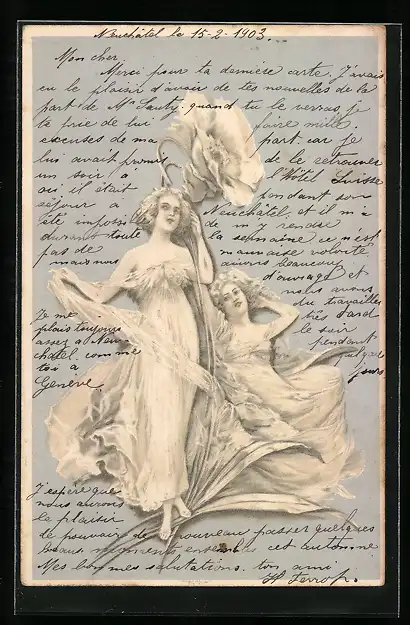 Neuchâtel le 15-2-1903.
Mon cher.
Merci pour ta dernière carte. J'avais
eu le plaisir d'avoir de tes nouvelles de la
part de Mr quand tu le verras, je
te prie de lui faire mille
excuses de ma part, car je
lui avait promis de le retrouver
un soir à l'Hôtel Suisse
où il était pendant son
séjour à Neuchâtel, et il m'a
été impossible de m'y rendre
durant toute la semaine ce n'est
pas de mauvaise volonté
mais nous avions beaucoup
d'ouvrage et
nous avons
du travailler
très tard
le soir
pendant
quelques
jours
Je me
plais toujours
assez à Neu-
châtel comme
toi à
Genève.
J'espère que
nous aurons
le plaisir
le pouvoir de nouveau passer quelques
beaux moments ensemble cet automne
Mes bonnes salutations. ton ami